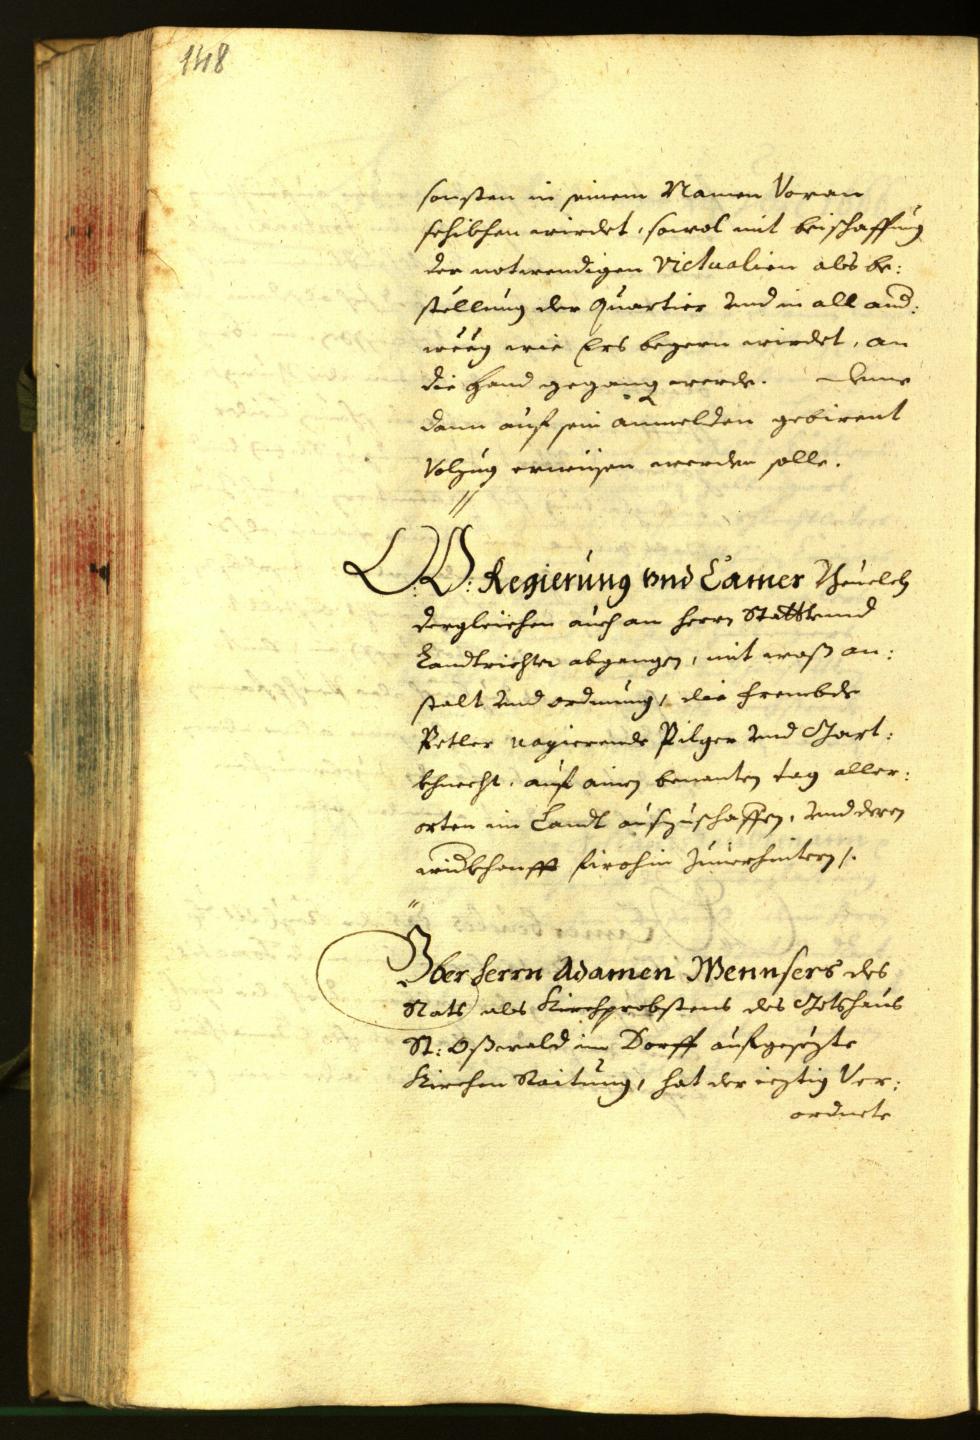 148
sonsten in seinem Namen Voran
schikhen wirdet, sowol mit beischaffung
der notwendigen Victualien als be:
stellung der Quartier und in all and:
weeg wie Ers begern wirdet, an
die Hand gegang werde.
dann auf sein anmelden gebirent
Volzug erweisen werden solle.
O: Ö: Regierung vnd Camer
dergleichen auch an herrn Statt und
Landtrichter abgangen, mit waß an:
stalt und ordnung, die frembde
Petler vagierende Pilger und Gart:
khnecht, auf ainen benenten tag aller:
orten im Landt auszuschaffen, und deren
widerkhonfft firohin zuuerhietern /.
Yber herrn Adamen Wennsers des
Rats als Kirchprobstens des Gotshaus
St: Oßwald im Dorff aufgesezte
Kirchen Raitung, hat der ieztig Ver:
ordnete